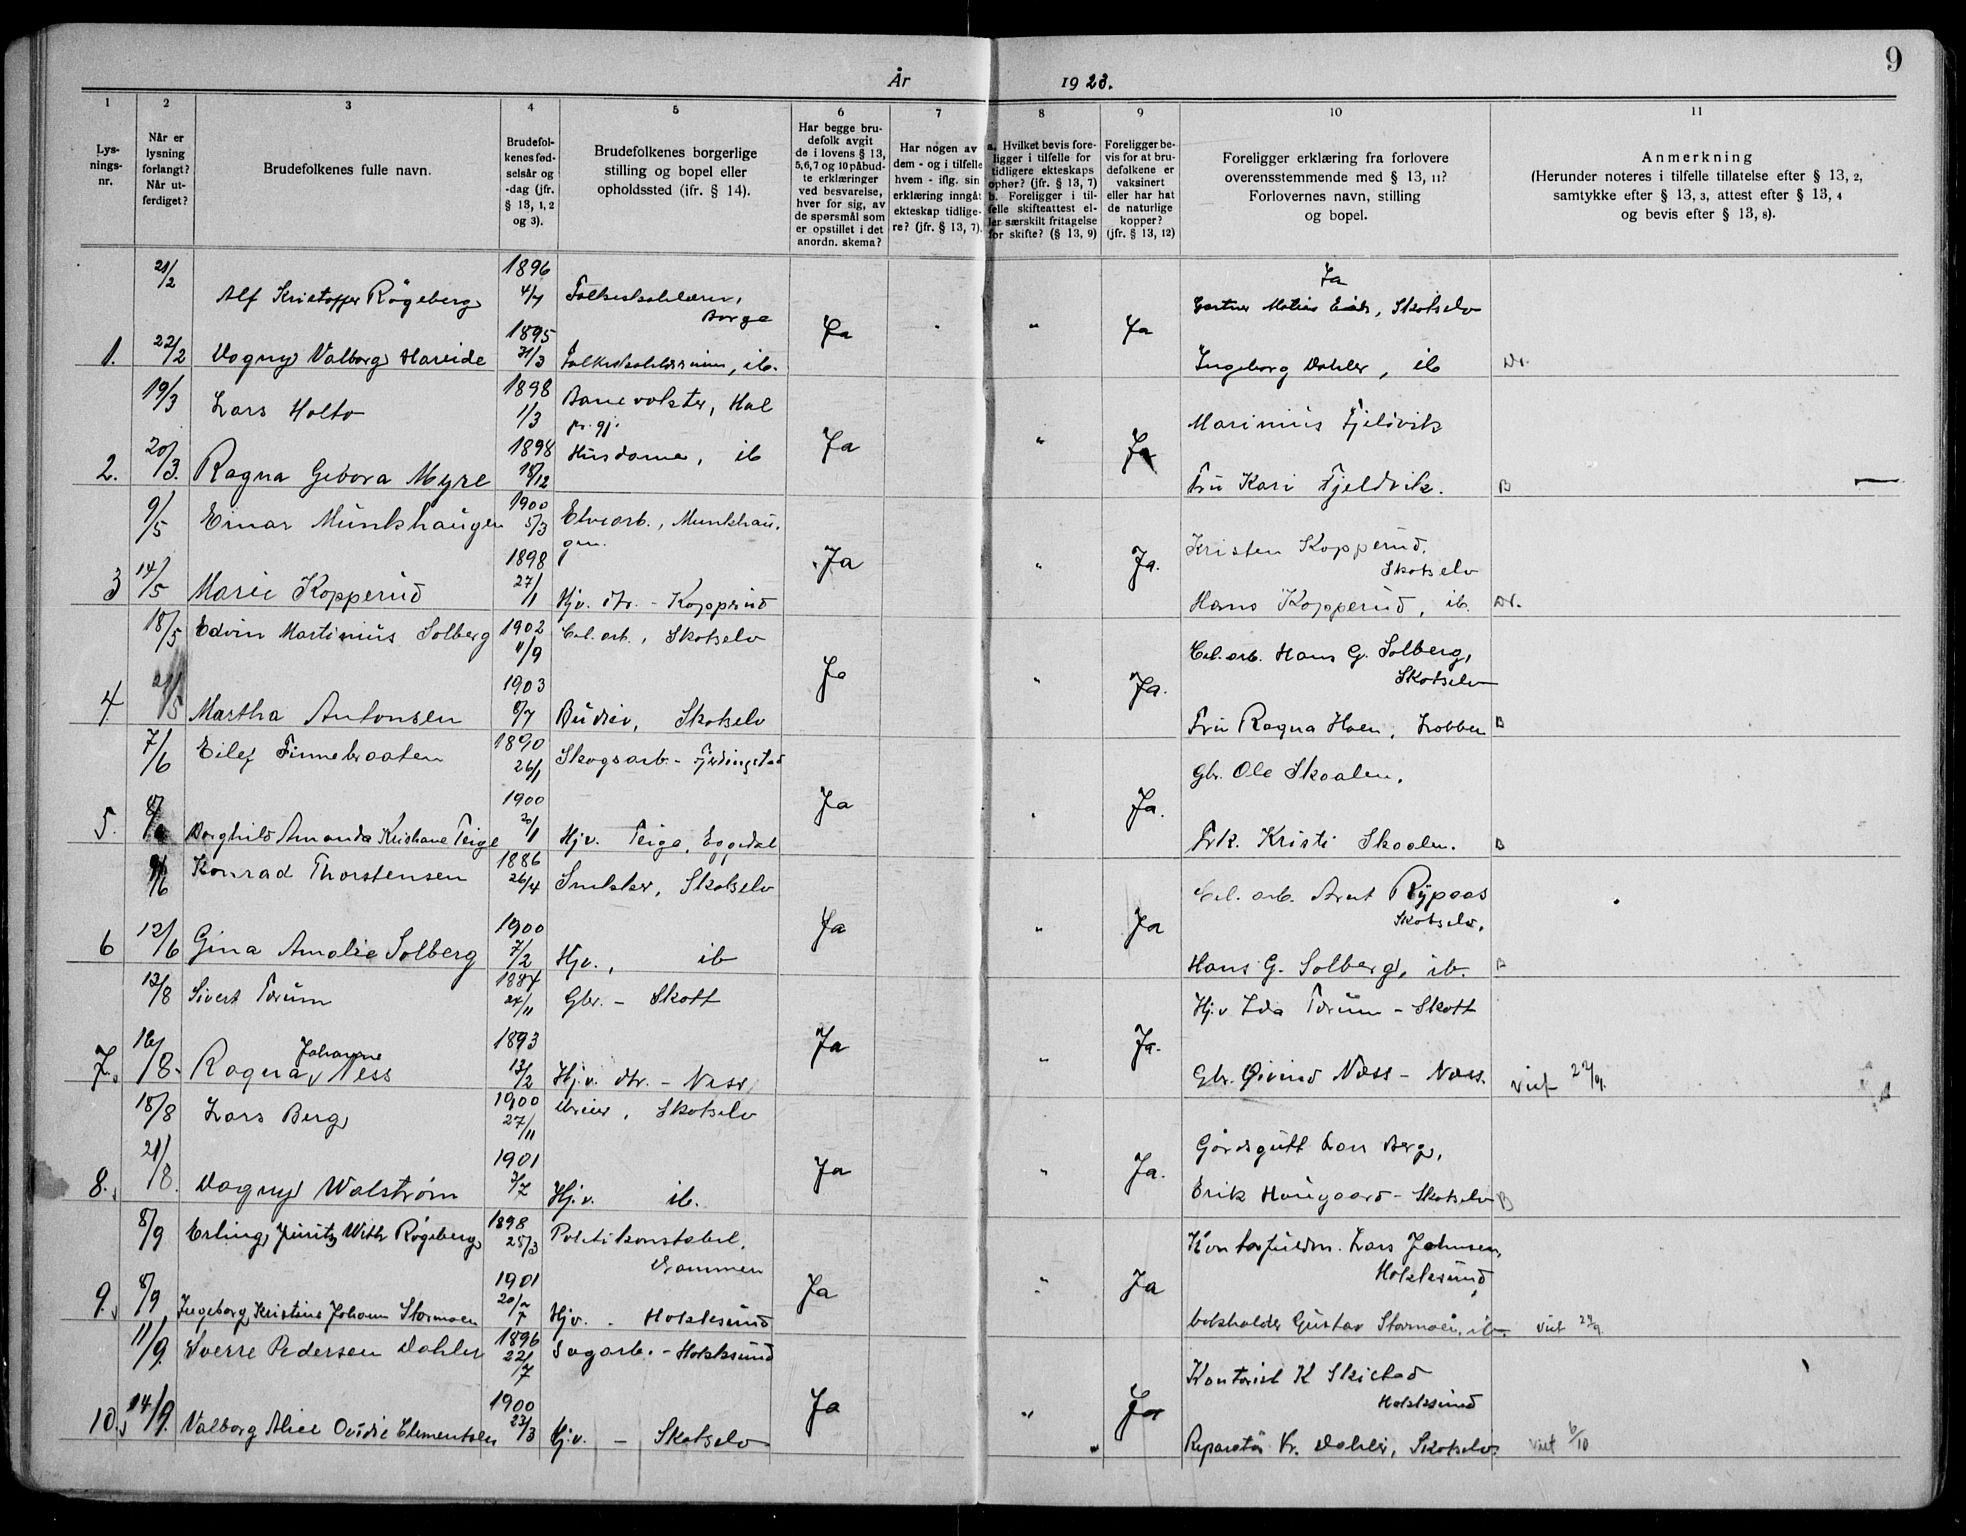 9
År 1923.
1 2 3 4 5 6 7 8 9 10 11
Lys-
nings-
nr.
Når er
lysning
forlangt?
Når ut-
ferdiget?
Brudefolkenes fulle navn.
Brudefol-
kenes fød-
selsår og
-dag (jfr.
§ 13, 1, 2
og 3).
Brudefolkenes borgerlige
stilling og bopel eller
opholdssted (ifr. § 14).
Har begge bru-
defolk avgit
de i lovens § 13,
5, 6, 7 og 10 påbud-
te erklæringer
ved besvarelse,
hver for sig, av
de spørsmål som
er opstillet i det
anordn. skema?
Har nogen av
dem - og i tilfelle
hvem - iflg. sin
erklæring inngåt
ekteskap tidlige-
re? (jfr. § 13, 7).
a. Hvilket bevis fore-
ligger i tilfelle for
tidligere ekteskaps
ophør? (jfr. § 13, 7)
b. Foreligger i til-
felle skifteattest el-
ler særskilt fritagelse
for skifte? (§ 13, 9)
Foreligger be-
vis for at bru-
defolkene er
vaksinert
eller har hat
de naturlige
kopper?
(jfr. § 13, 12)
Foreligger erklæring fra forlovere
overensstemmende med § 13, 11?
Forlovernes navn, stilling
og bopel.
Anmerkning
(Herunder noteres i tilfelle tillatelse efter § 13, 2,
samtykke efter § 13, 3, attest efter § 13, 4
og bevis efter § 13, 8).
21/2 Alf Kristoffer Røgeberg 1896 4/7 Folkeskolelærer, Borge Ja " Ja Ja
Gartner Matias Eids, Skotselv
1. 22/2 Dagny Valborg Hareide 1895 31/3 Folkeskolelærerinne, ib. Ingeborg Dahler, ib Dr.
19/3 Lars Holto 1898 1/3 Banevokter, Hal pr. gj. Ja " Ja Marinius Fjeldvik
2. 20/3. Ragna Gebora Myre 1898 18/12 Husdame, ib Fru Kari Fjeldvik. B
9/5 Einar Munkhaugen 1900 5/3 Elvearb., Munkhau-
gen. Ja " Ja. Kristen Kopperud,
Skotselv
3 14/5 Marie Kopperud 1898 27/1 Hjv. dtr. - Kopperud Hans Kopperud, ib. Dr.
18/5 Edvin Martinius Solberg 1902 11/9 Cel. arb., Skotselv Ja " Ja. Cel. arb. Hans G. Solberg,
Skotselv
4 /5 Martha Antonsen 1903 8/7 Budeie, Skotselv Fru Ragna Hoen, Lobben B
7/6 Eilef Finnebraaten 1890 26/1 Skogsarb. - Fjerdingstad Ja Ja. Gbr. Ole Skaalen.
5. Borghild Amanda Kristiane Teige 1900 20/1 Hjv. Teige, Eggedal Frk. Kristi Skaalen. B
/6 Konrad Thorstensen 1886 26/4 Snekker, Skotselv Ja " Ja Cel. arb. Arnt Rypaas
Skotselv.
6 12/6 Gina Amalie Solberg 1900 7/2 Hjv., ib Hans G. Solberg, ib. B
13/8 Sivert Torum 1887 24/11 Gbr. - Skott Ja " Ja. Hjv Ida Torum - Skott
7. 16/8. Ragna Johanne Ness 1893 13/2 Hjv. dtr. - Næss Gbr. Øivind Næss - Næss. viet 22/9.
18/8 Lars Berg 1900 27/11 Dreier, Skotselv Ja " Ja. Gårdsgutt Lars Berg,
8. 21/8. Dagny Walstrøm 1901 3/2 Hj.v. ib. Erik Haugaard - Skotselv B
8/9 Erling Juritz With Røgeberg 1898 25/3 Politikonstabel,
Drammen Ja " Ja Kontorfuldm. Lars Johnsen,
Hokksund
9. 8/9 Ingeborg Kristine Johanne Stormoen 1901 20/7 Hjv. - Hokksund bokholder Gustav Stormoen, ib. viet 29/9.
11/9. Sverre Pedersen Dahler 1896 22/7 Sagarb. - Hokksund Ja " Ja Kontorist K Skistad
Hokksund
10. 14/9. Valborg Alice Ovidie Clementsen 1900 23/3 Hj.v. - Skotselv " Reparatør Kr. Dahler, Skotselv. viet 6/10